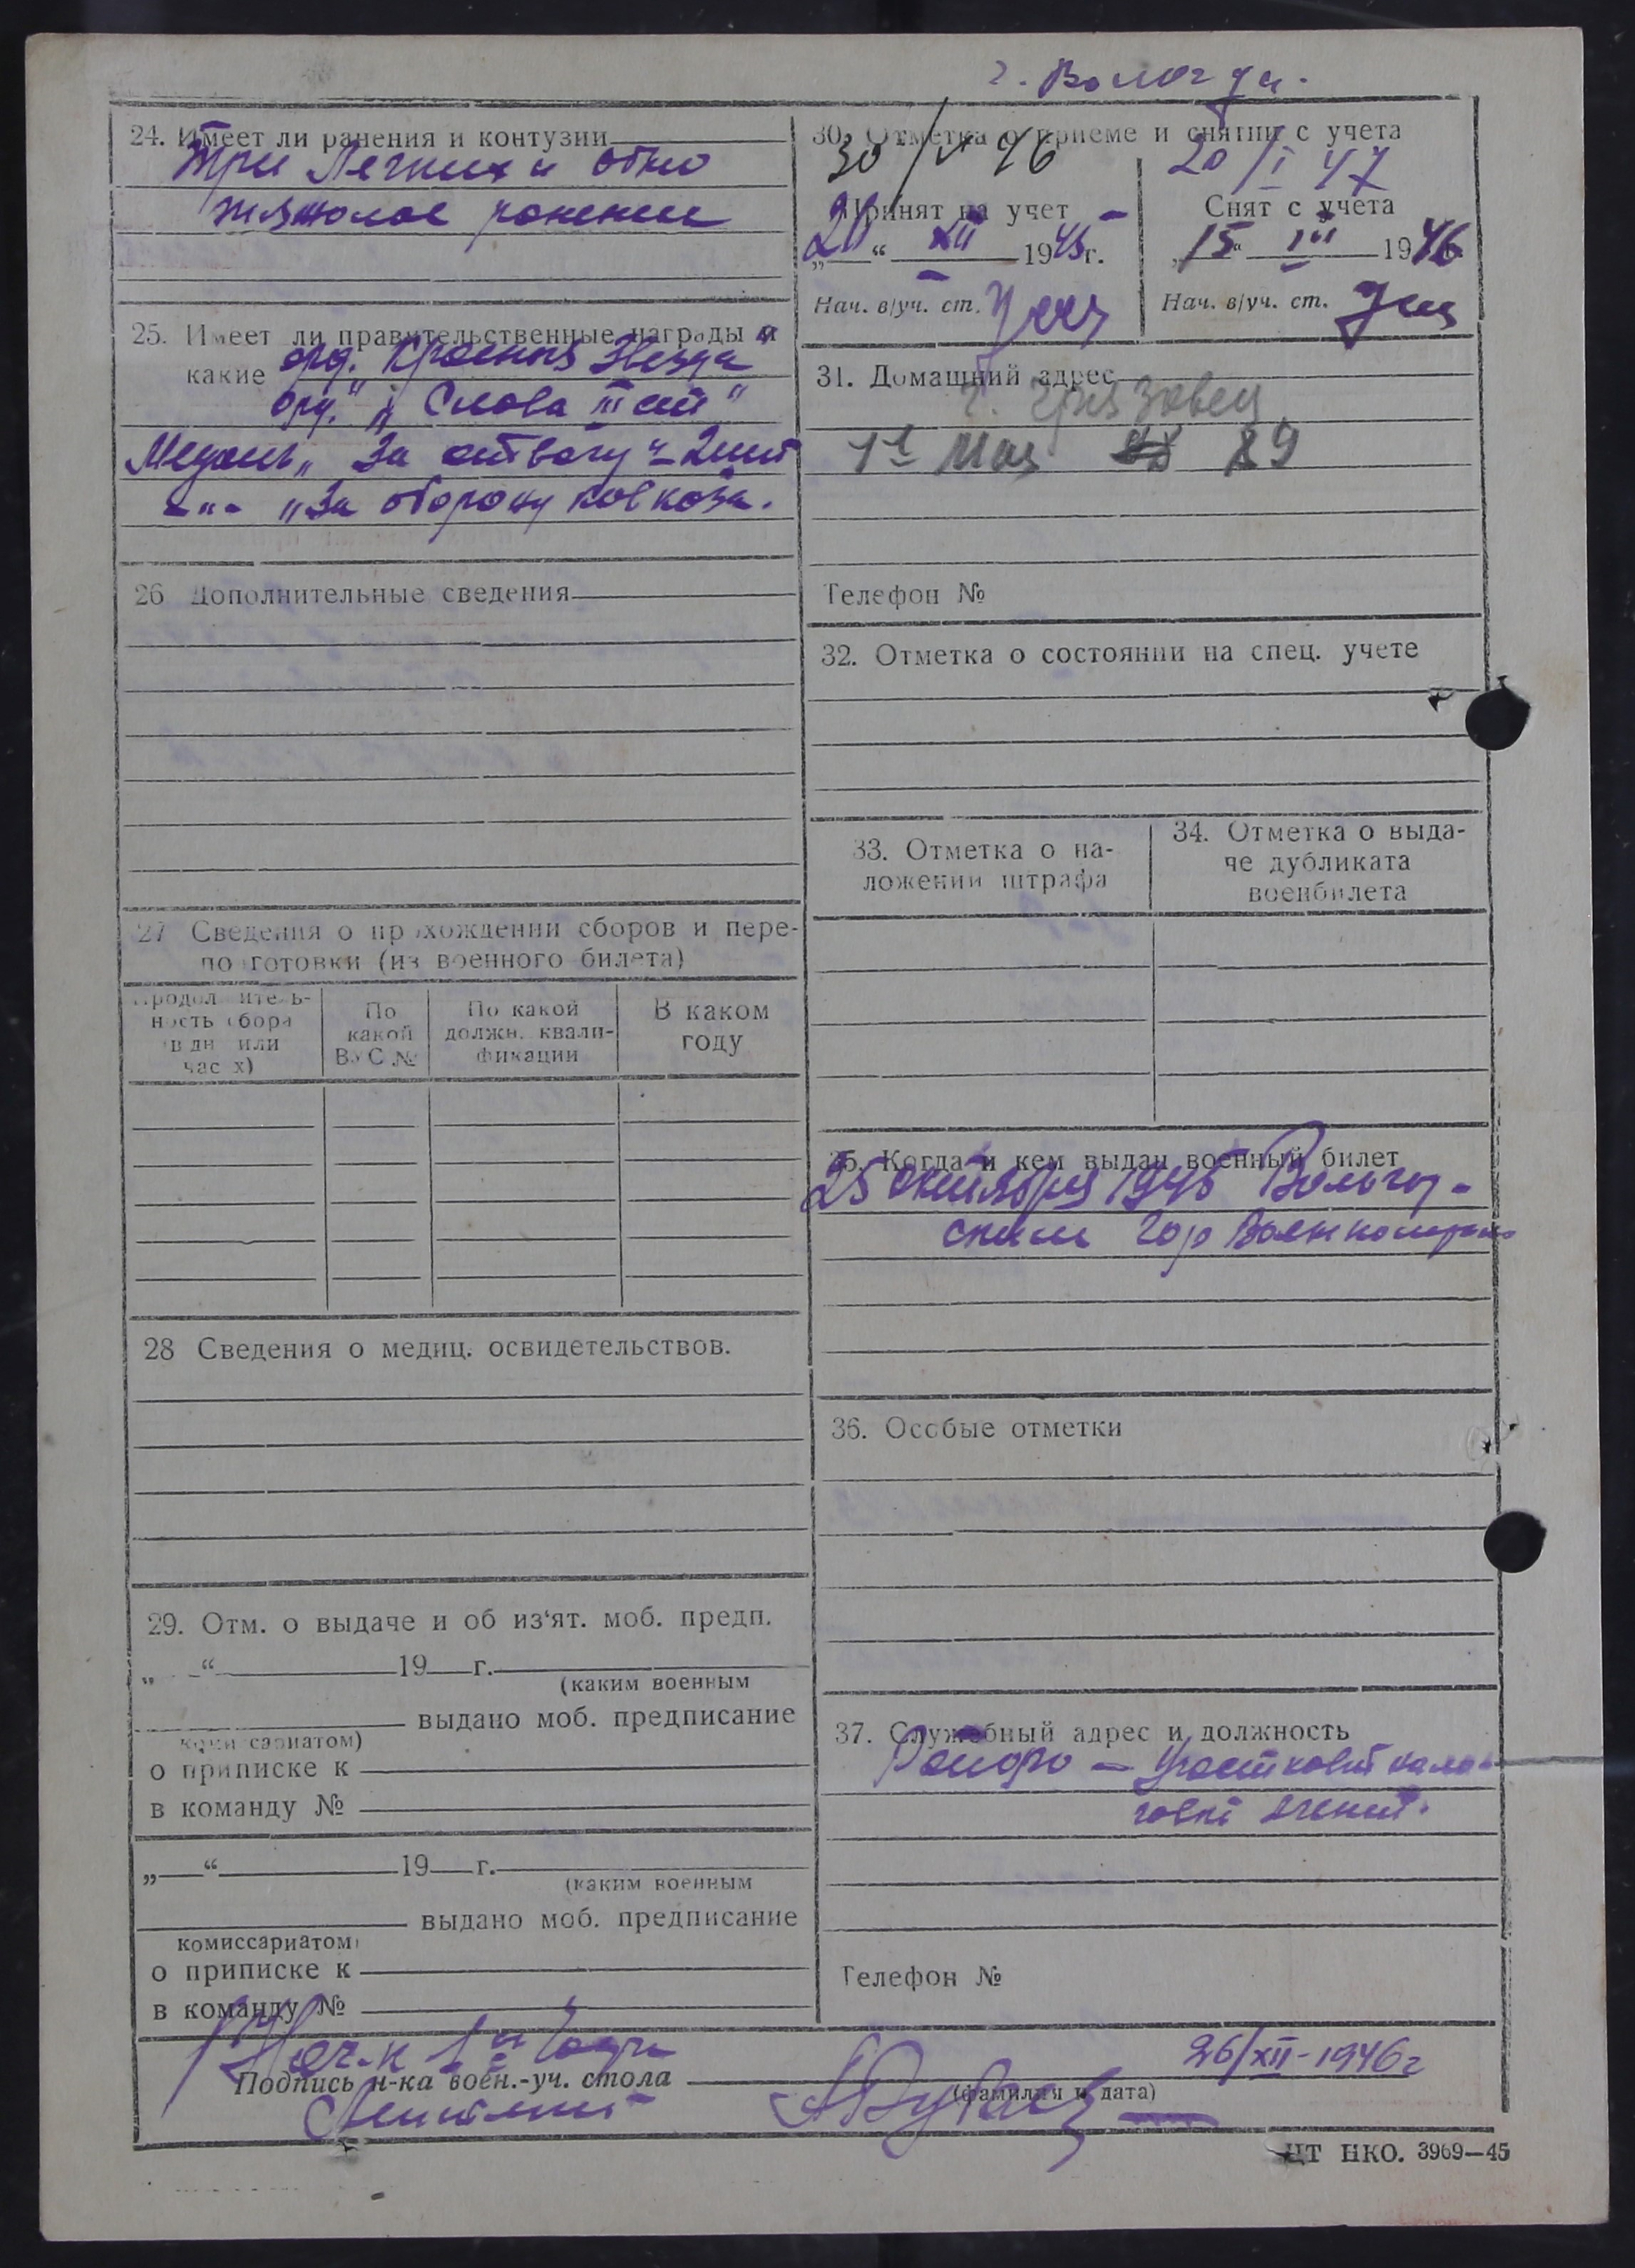 г. Вологда.
24. Имеет ли ранения и контузии
три Легких и одно
тяжолое ранение
25. Имеет ли правительственные награды и
какие орд. "Красная Звезда"
орд. "Слава III ст"
Медаль "За отвагу" - 2 шт
-"- "За оборону Кавказа.
26 Дополнительные сведения
27 Сведения о прохождении сборов и пере-
подготовки (из военного билета)
Продолжитель-
ность сбора
(в дн. или
часах)
По
какой
ВУС №
По какой
должн. квали-
фикации
В каком
году
28 Сведения о медиц. освидетельствов.
29. Отм. о выдаче и об из‘ят. моб. предп.
„ “ 19 г.
(каким военным
выдано моб. предписание
комиссариатом)
о приписке к
в команду №
„ “ 19 г.
(каким военным
выдано моб. предписание
комиссариатом)
о приписке к
в команду №
30. Отметка о приеме и снятии с учета
30/V 46
Принят на учет
„20“ XII 1945 г.
Нач. в/уч. ст.
20/I 47
Снят с учета
„15“ III 1946
Нач. в/уч. ст.
31. Домашний адрес
г. Грязовец
1е Мая 89
Телефон №
32. Отметка о состоянии на спец. учете
33. Отметка о на-
ложении штрафа
34. Отметка о выда-
че дубликата
военбилета
35. Когда и кем выдан военный билет
25 октября 1945 Вологод-
ским Гор Военкоматом
36. Особые отметки
37. Служебный адрес и должность
Райфо - Участковый нало-
говый агент.
Телефон №
Нач-к 1й части
Подпись н-ка воен.-уч. стола
26/XII-1946г
(фамилия и дата)
ЦТ НКО. 3969—45